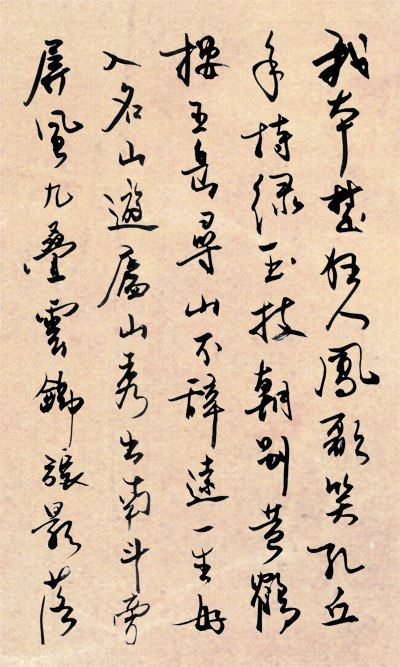 我本楚狂人鳳歌笑孔丘
手持绿玉杖朝别黄鶴
楼五岳尋山不辭遠一生好
入名山遊廬山秀出南斗旁
屏風九疊雲錦張影落